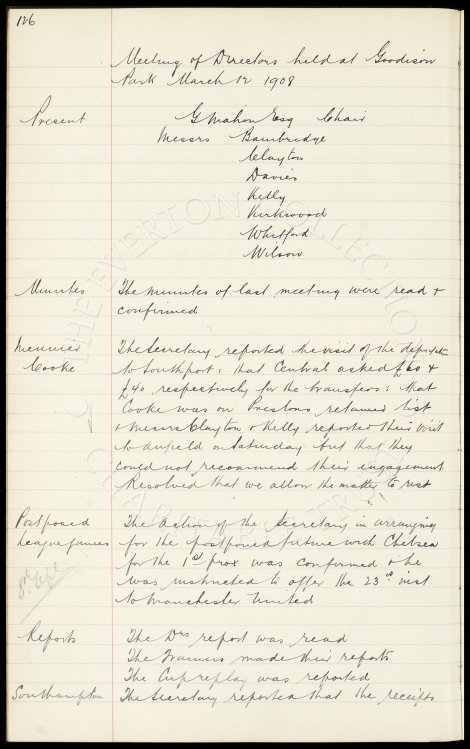 126
Meeting of Directors held at Goodison
Park March 12 1908
Present G Mahon Esq Chair
Messrs Bainbridge
Clayton
Davies
Kelly
Kirkwood
Whitford
Wilson
Minutes The minutes of last meeting were read &
confirmed
Meunier The Secretary reported the visit of the deputation
Cooke to Southport: that Central asked £60 &
£40 respectively for the transfers: that
Cooke was on Prestons retained list
& Messrs Clayton & Kelly reported their visit
to Anfield on Saturday but that they
could not recommend their engagement
Resolved that we allow the matter to rest
Postponed The action of the Secretary in arranging
League Games for the postponed fixture with Chelsea
for the 1st prox was confirmed & he
8th Apl was instructed to offer the 23rd inst
to Manchester United
Reports The Drs report was read
The Trainers made their reports
The Cup replay was reported
Southampton The Secretary reported that the receipts
THE EVERTON COLLECTION
CHARITABLE TRUST